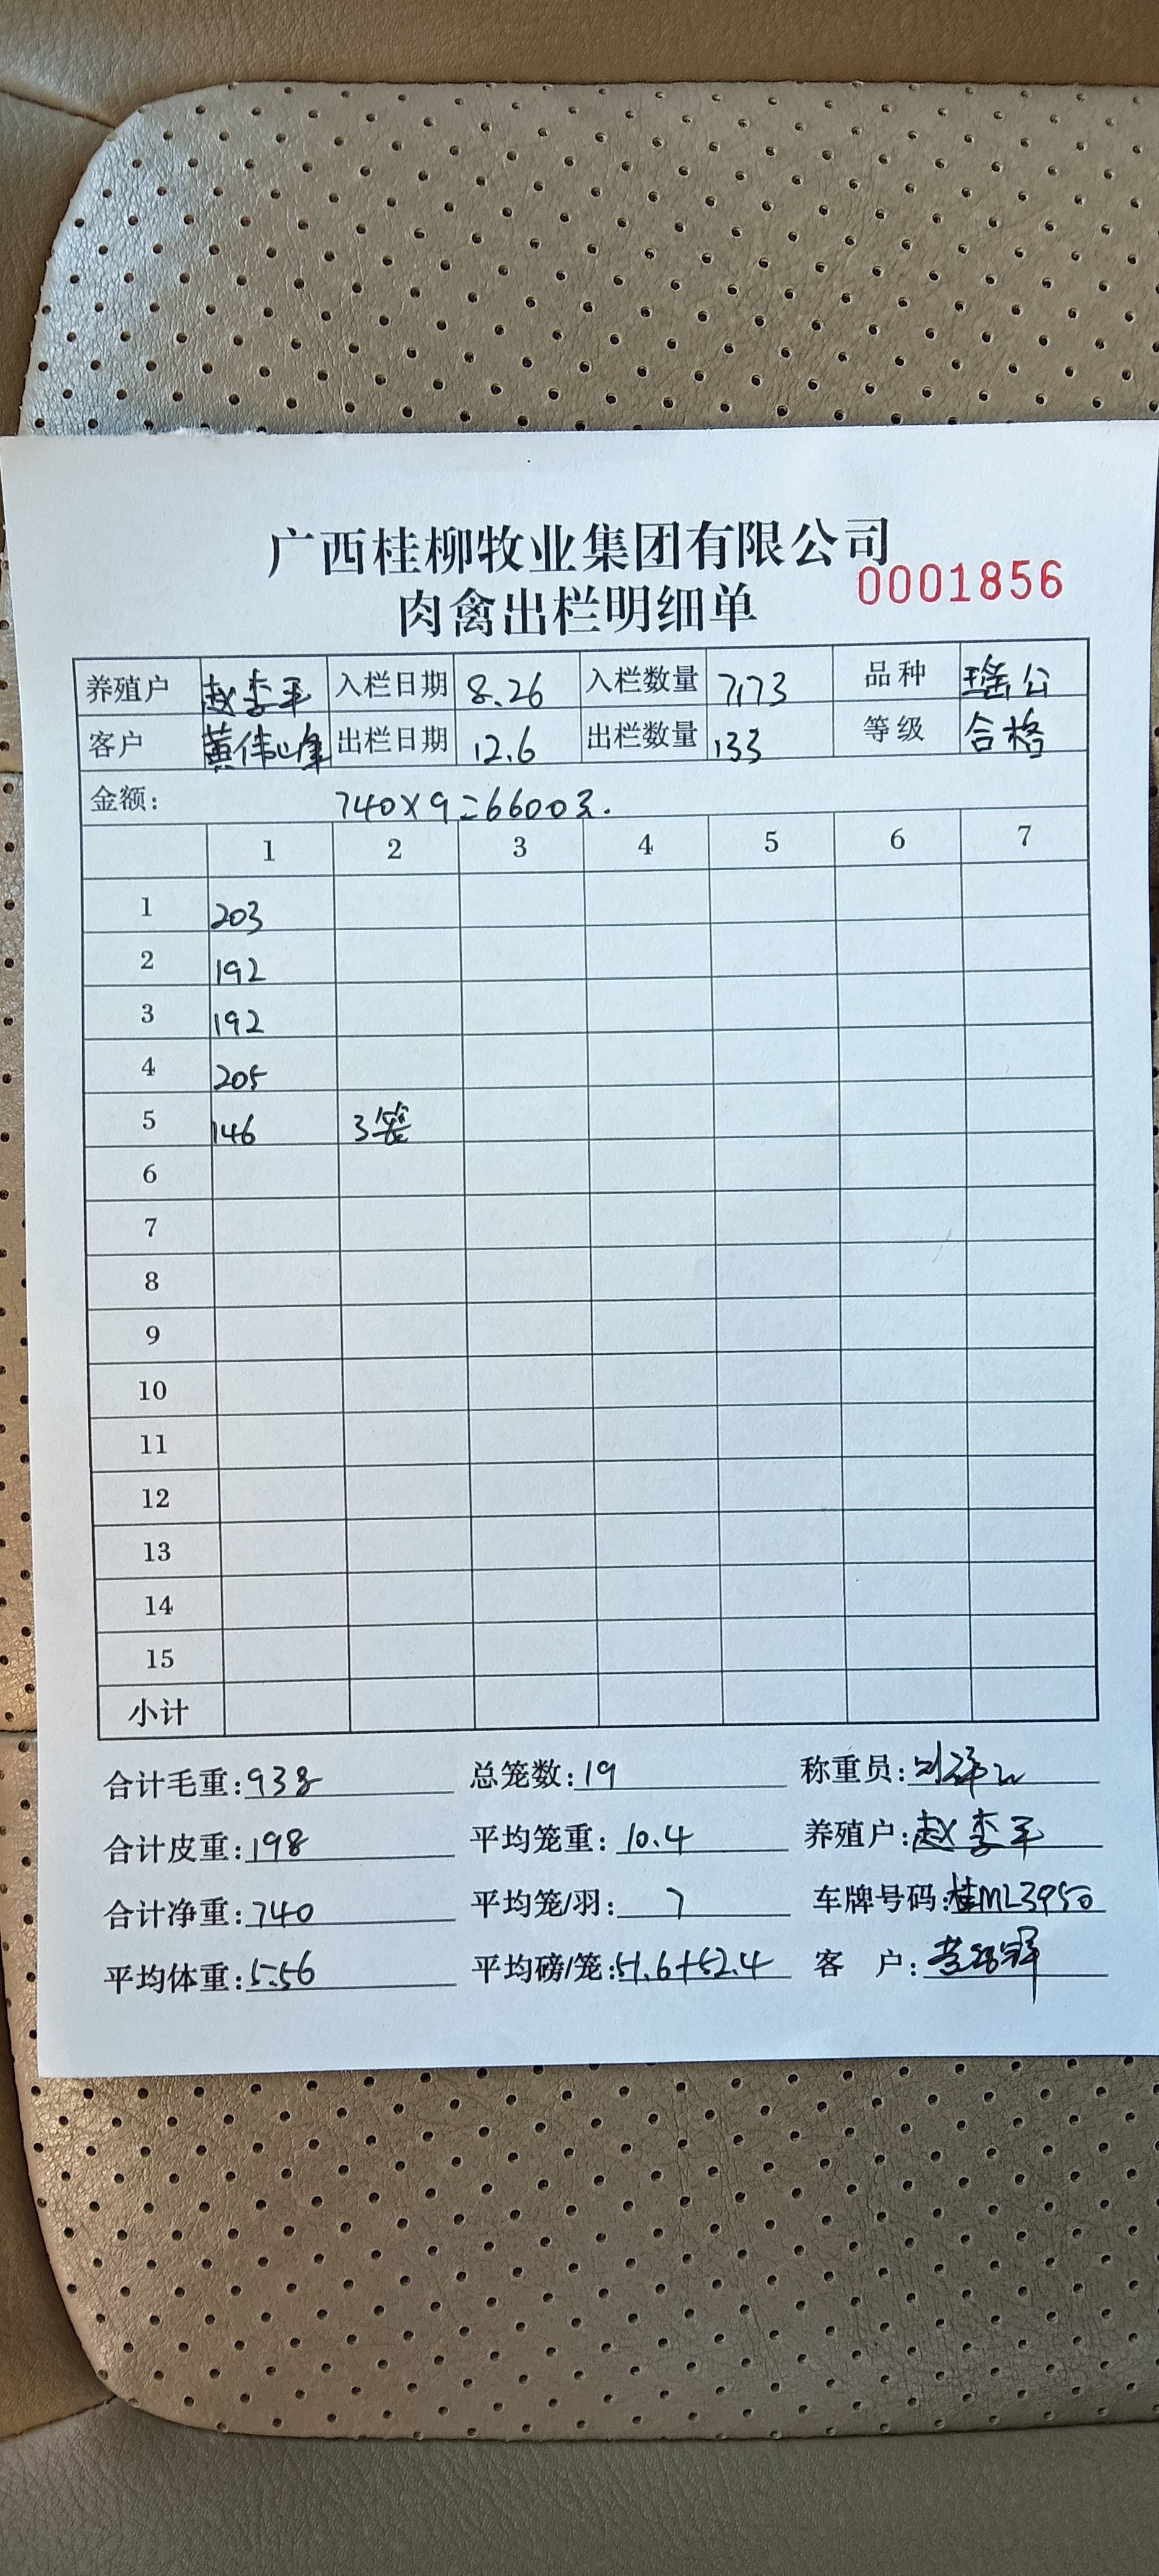 广西桂柳牧业集团有限公司
0001856
肉禽出栏明细单
养殖户 赵李平 入栏日期 8.26 入栏数量 7173 品种 瑶公
客户 黄伟峰 出栏日期 12.6 出栏数量 133 等级 合格
金额: 740×9=6600元.
1 2 3 4 5 6 7
1 203
2 192
3 192
4 205
5 146 3笼
6
7
8
9
10
11
12
13
14
15
小计
合计毛重:938 总笼数:19 称重员:
合计皮重:198 平均笼重:10.4 养殖户:赵李平
合计净重:740 平均笼/羽:7 车牌号码:桂ML3950
平均体重:5.56 平均磅/笼:51.6+52.4 客户: